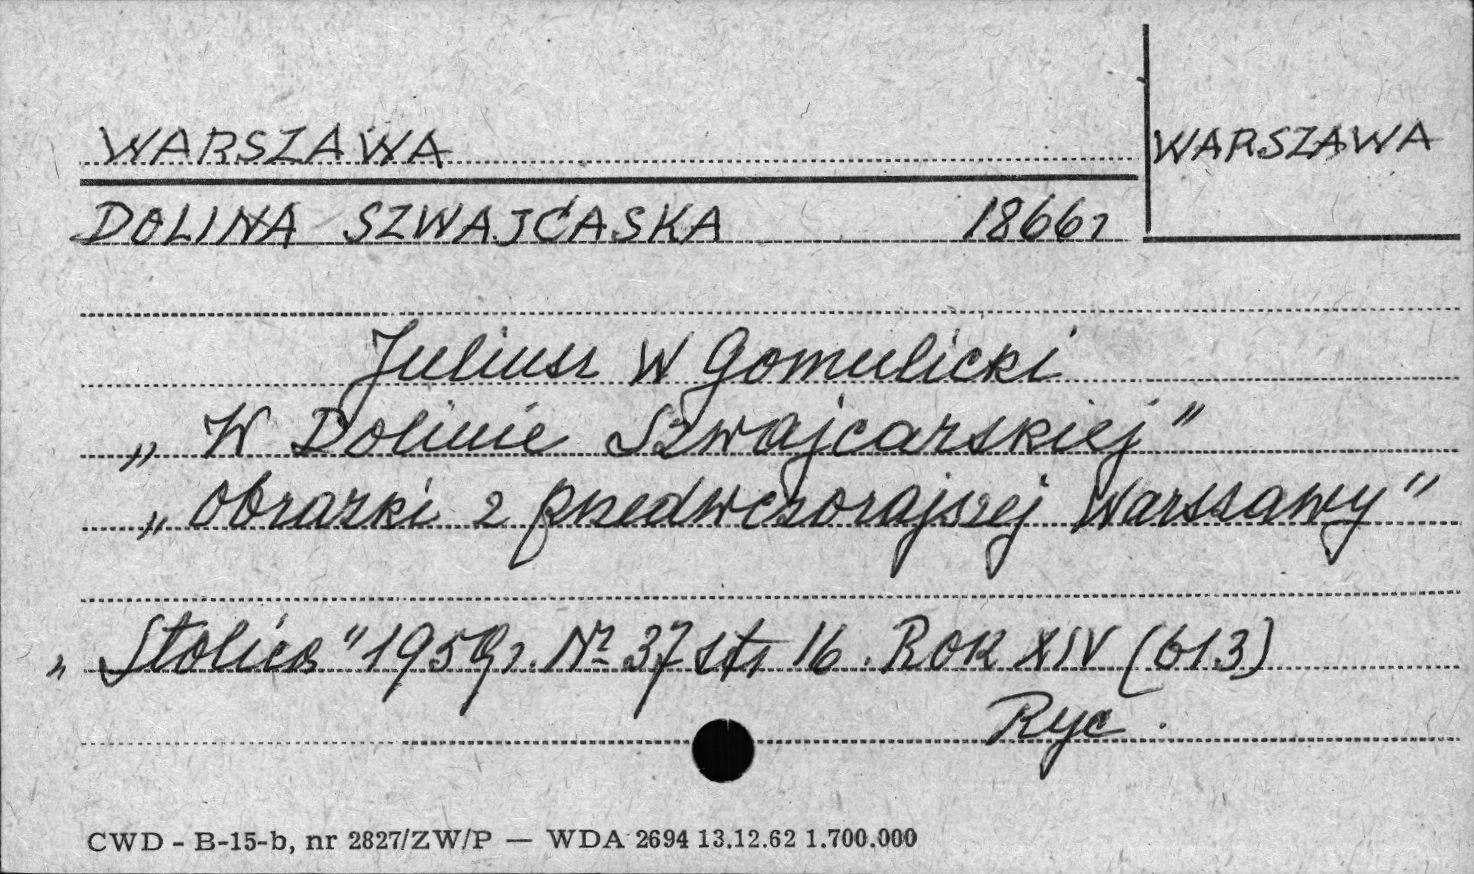 WARSZAWA
WARSZAWA
DOLINA SZWAJCASKA 1866r
Juliusz W Gomulicki
„ W Dolinie Szwajcarskiej "
„ Obrazki z przedwczorajszej Warszawy "
„ Stolica " 1959 r. Nr 37 str 16. Rok XIV (613)
Ryc .
CWD - B-15-b, nr 2827/ZW/P — WDA 2694 13.12.62 1.700.000